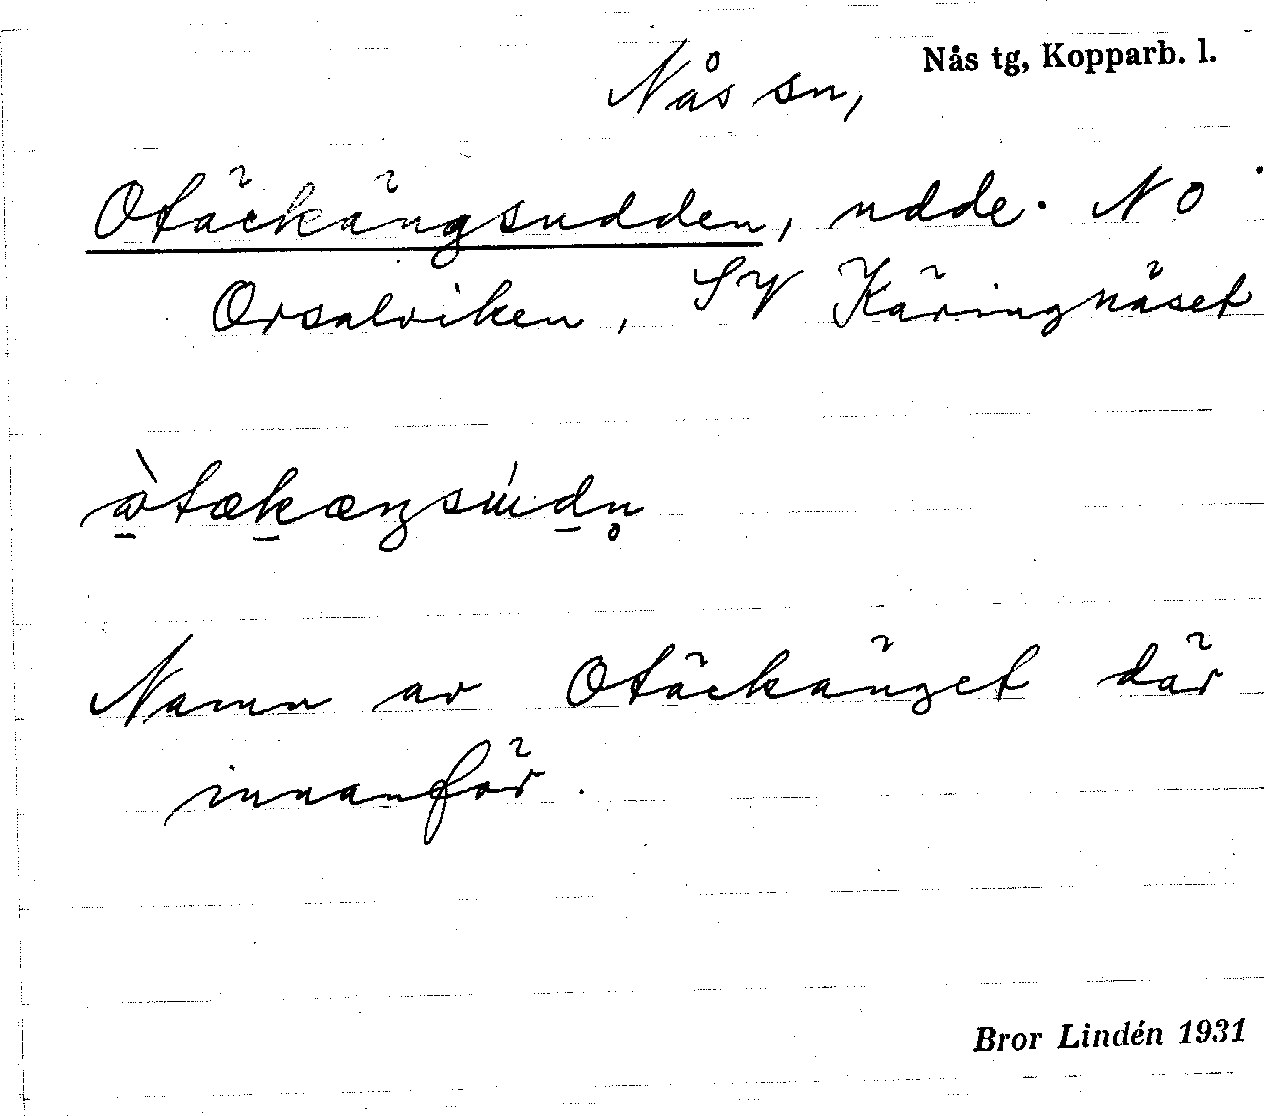 Nås tg, Kopparb. l.
Nås sn,
Otäckängsudden, udde. NO
Orsalviken, SV Käringnäset
Namn av Otäckänget där
innanför.
Bror Lindén 1931